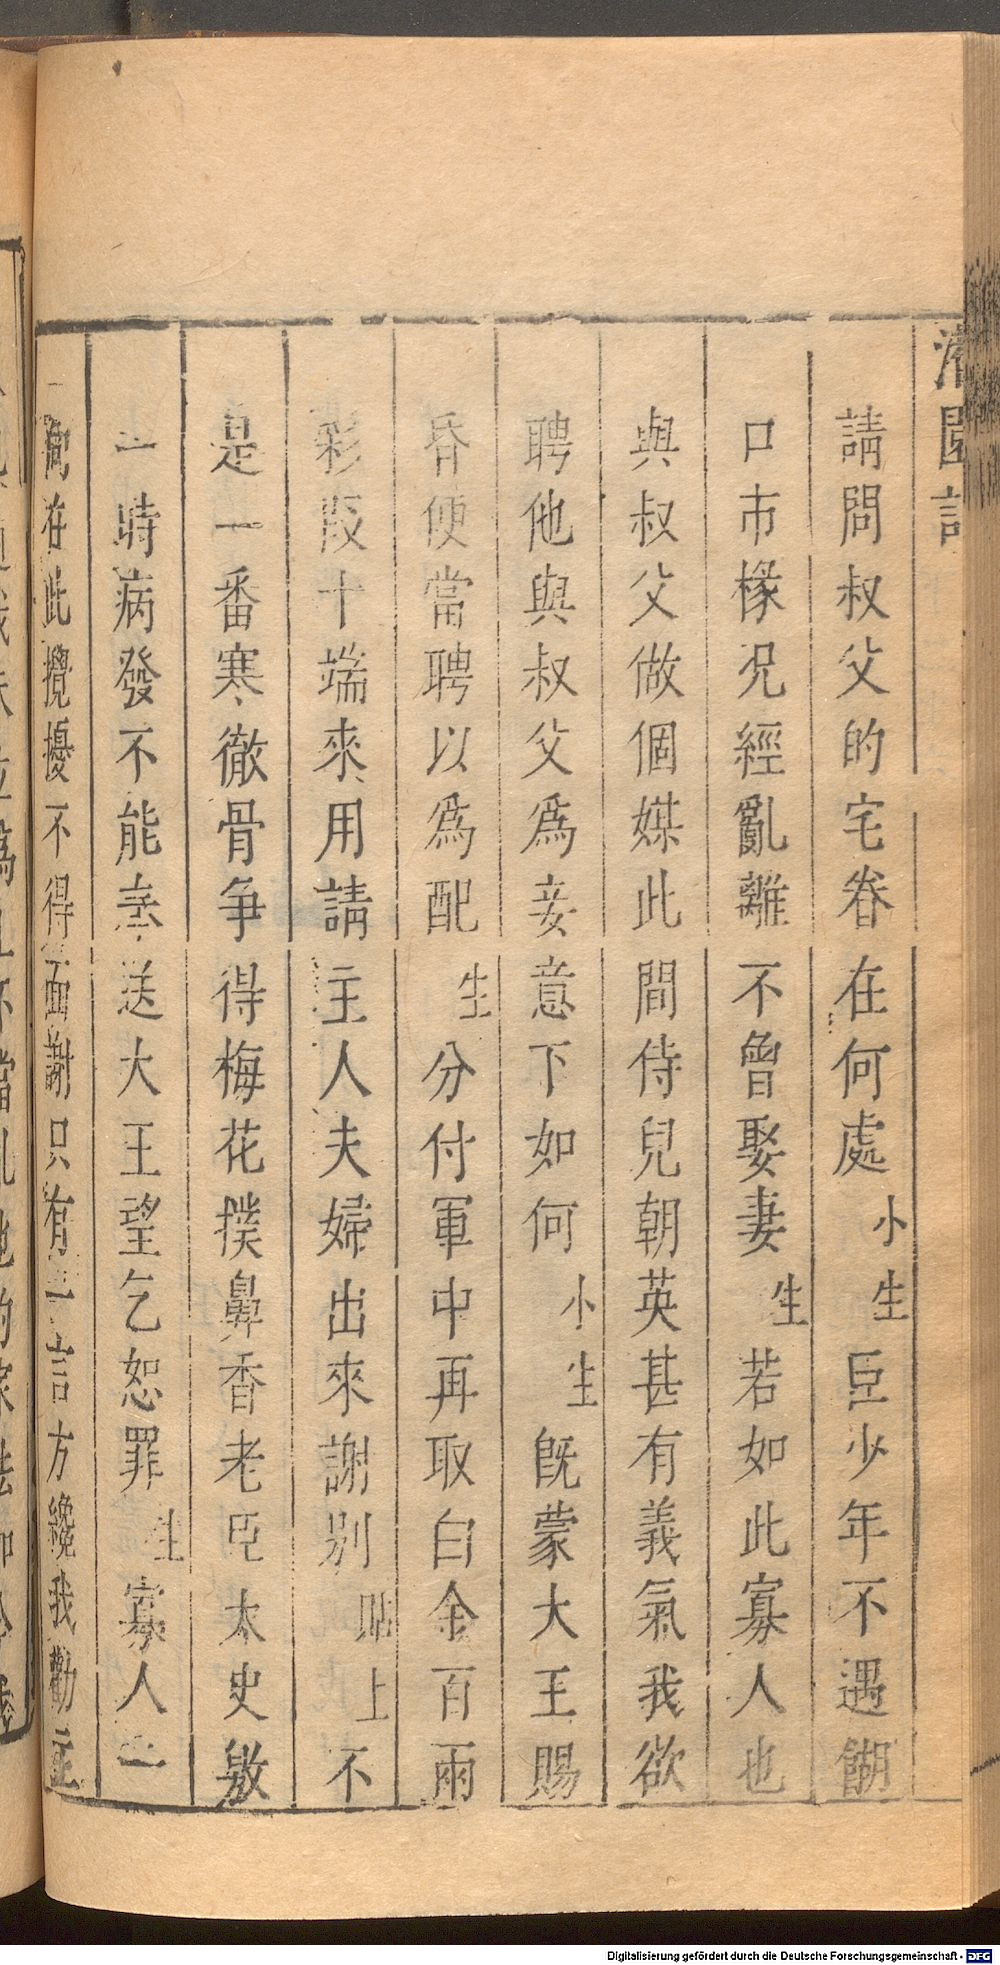 灌園記
請問叔父的宅眷在何處小生臣少年不遇餬
口市椽況經亂離不曾娶妻生若如此寡人也
與叔父做個媒此間侍兒朝英甚有義氣我欲
聘他與叔父爲妾意下如何小生旣蒙大王賜
昏便當聘以爲配生分付軍中再取白金百兩
彩段十端來用請主人夫婦出來謝別貼上不
是一番寒徹骨爭得梅花撲鼻香老臣太史敫
一時病發不能李送大王望乞恕罪生寡人一
向在此攪擾不得面謝只有一言方纔我勸主
Digitalisierung gefördert durch die Deutsche Forschungsgemeinschaft - DFG